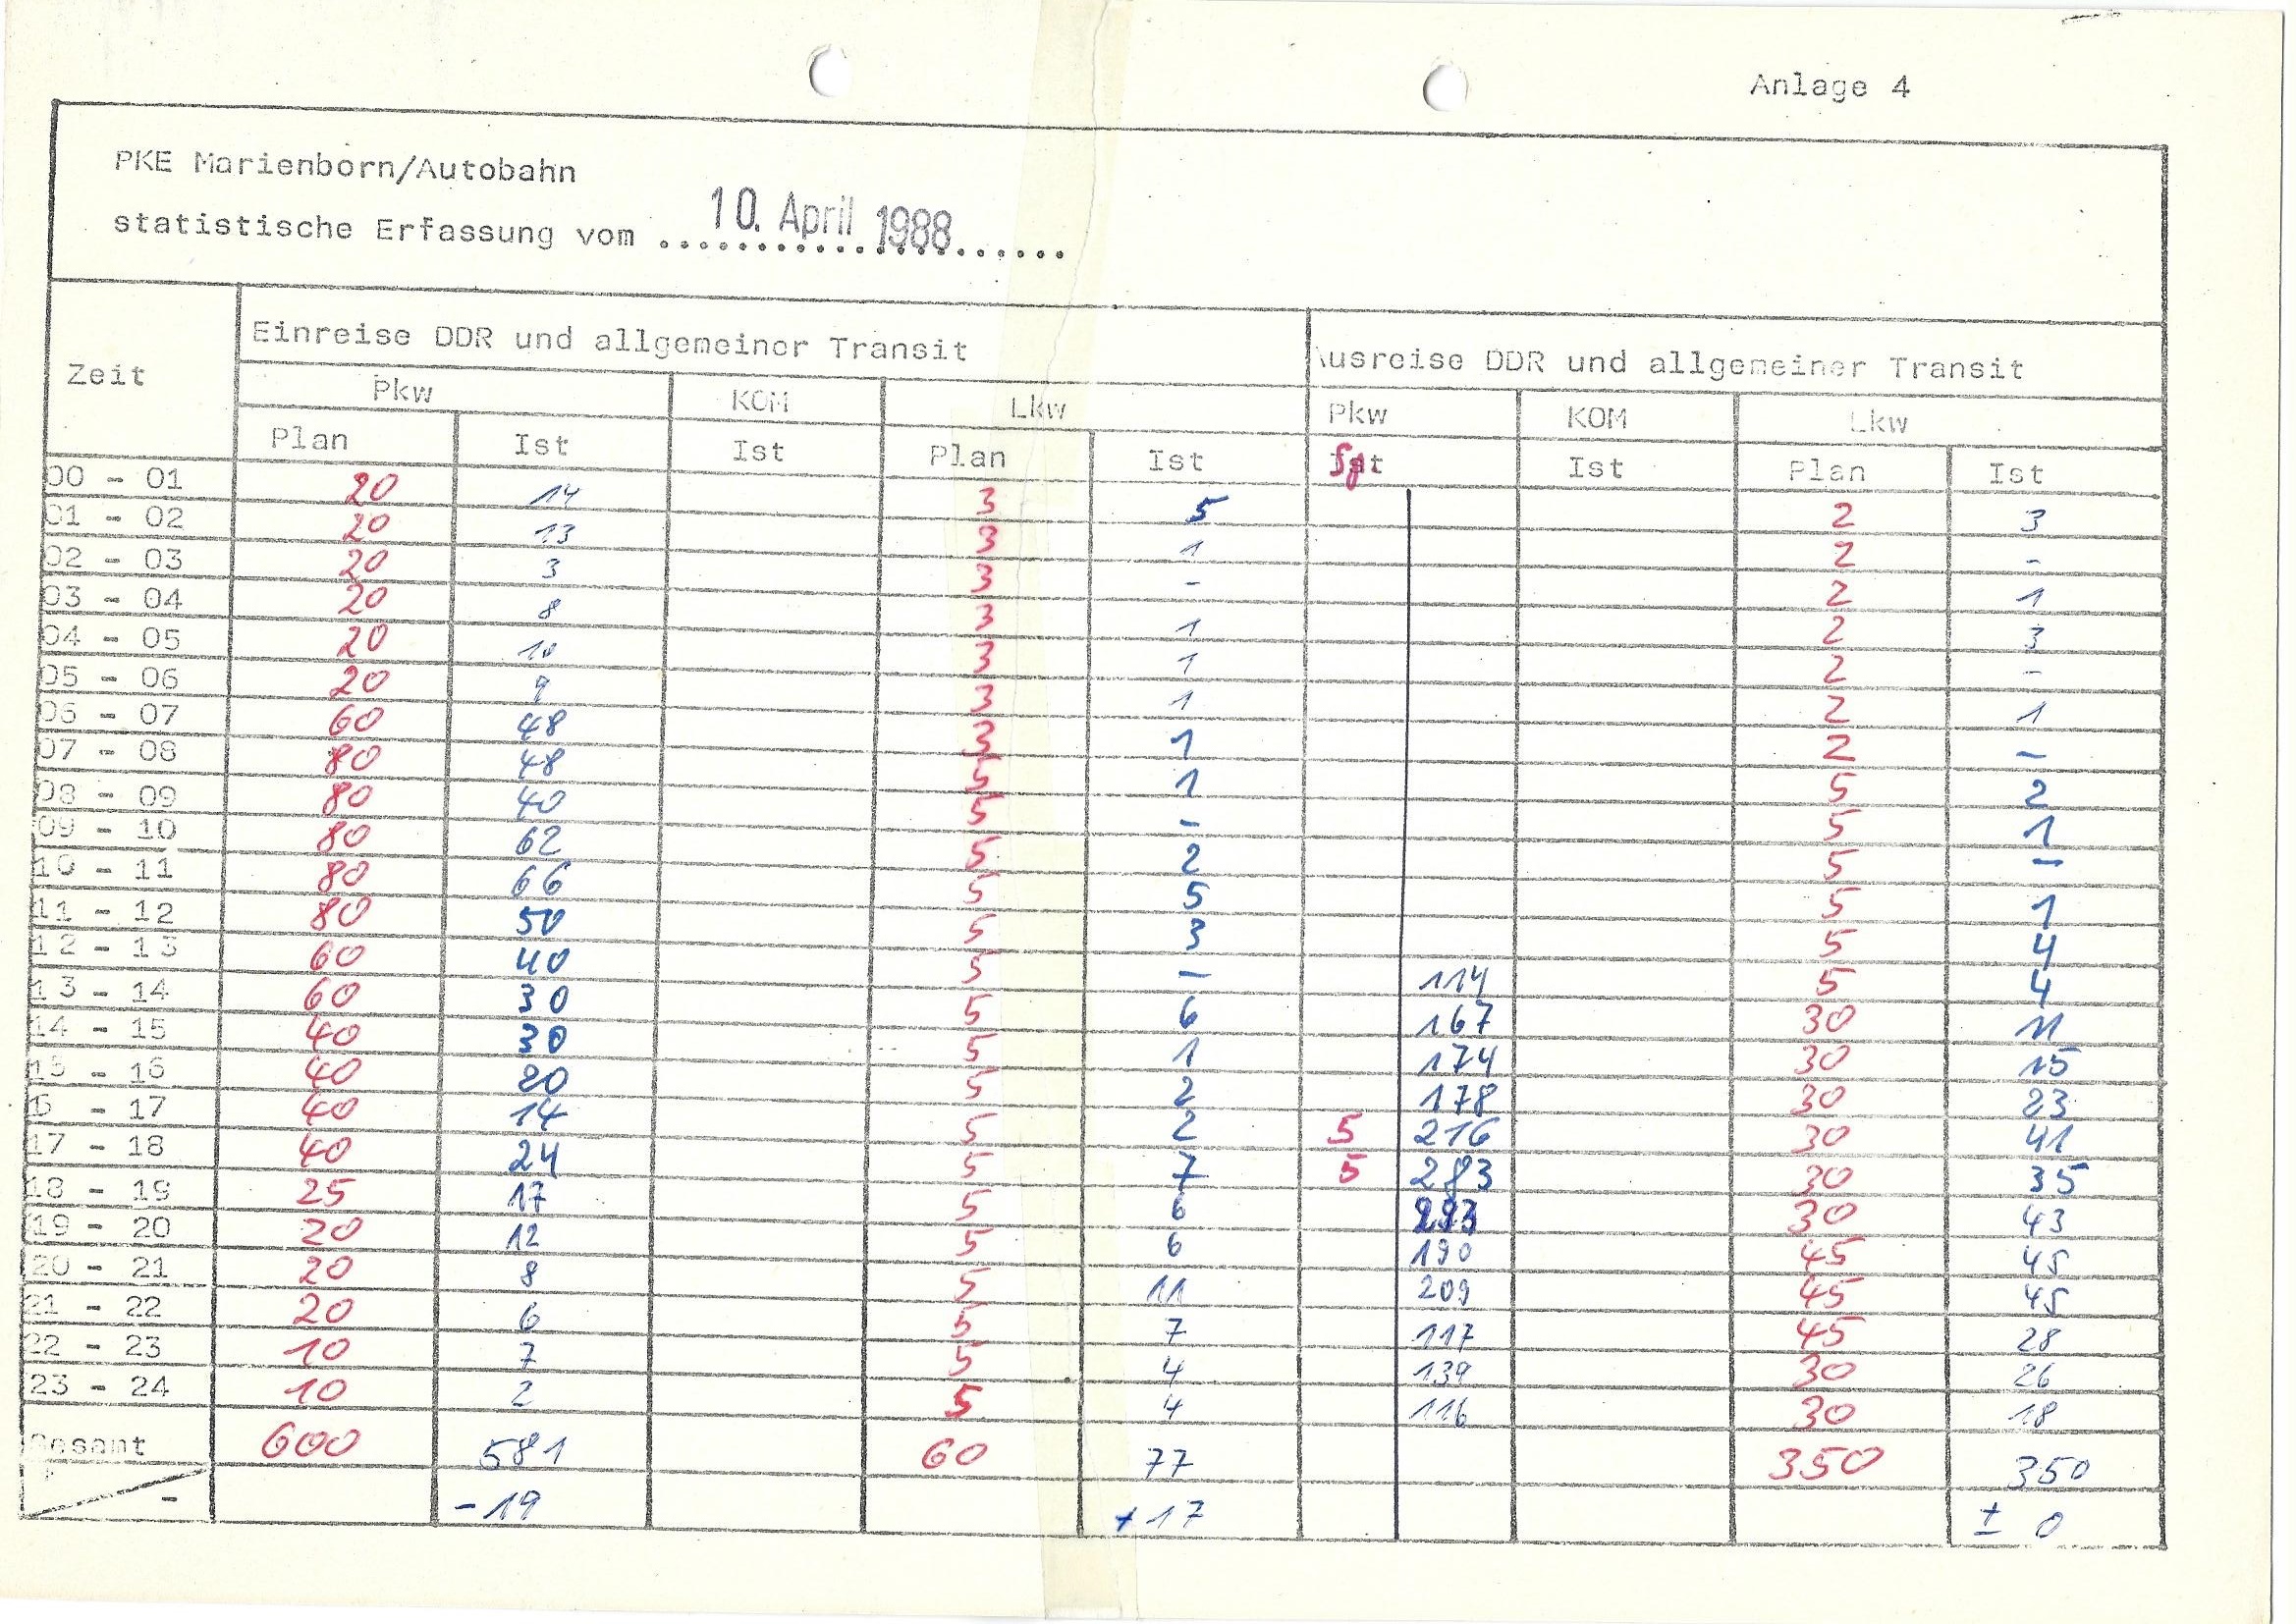 Anlage 4
PKE Marienborn/Autobahn
statistische Erfassung vom 10. April 1988
Zeit Einreise DDR und allgemeiner Transit Ausreise DDR und allgemeiner Transit
Pkw KOM Lkw Pkw KOM Lkw
Plan Ist Ist Plan Ist Ist Plan Ist
00 - 01 20 14 3 5 2 3
01 - 02 20 13 3 1 2 -
02 - 03 20 3 3 - 2 1
03 - 04 20 8 3 1 2 3
04 - 05 20 10 3 1 2 -
05 - 06 20 9 3 1 2 1
06 - 07 60 48 3 1 2 -
07 - 08 80 48 5 1 5 2
08 - 09 80 40 5 - 5 1
09 - 10 80 62 5 2 5 -
10 - 11 80 66 5 5 5 1
11 - 12 80 50 5 3 5 4
12 - 13 60 40 5 - 114 5 4
13 - 14 60 30 5 6 167 30 11
14 - 15 40 30 5 1 174 30 15
15 - 16 40 20 5 2 178 30 23
- 17 40 14 5 2 5 216 30 41
17 - 18 40 24 5 7 5 283 30 35
18 - 19 25 17 5 6 30 43
19 - 20 20 12 5 6 190 45 45
20 - 21 20 8 5 11 209 45 45
21 - 22 20 6 5 7 117 45 28
22 - 23 10 7 5 4 139 30 26
23 - 24 10 2 5 4 116 30 18
Gesamt 600 581 60 77 350 350
- -19 +17 ± 0